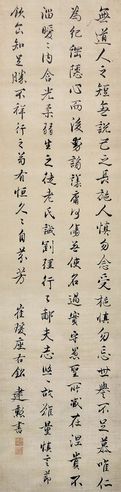 無道人之短無說己之長施人慎勿念受施慎勿忘世譽不足慕唯仁
為紀綱隱心而後動謗議庸何傷無使名過實守愚聖所臧在涅貴不
淄曖曖內含光柔弱生之徒老氏誡剛強行行鄙夫志悠悠故難量慎言節
飲食知足勝不祥行之苟有恆久久自芬芳 崔瑗座右銘 建勳書